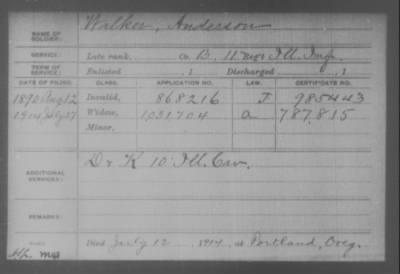 NAME OF SOLDIER: Walker, Anderson
SERVICE: Late rank, Co. B, 11 Ill. Inf.
TERM OF SERVICE: Enlisted , 1 Discharged , 1
DATE OF FILING. CLASS. APPLICATION NO. LAW. CERTIFICATE NO.
1890 Aug 12 Invalid, 868216 J 985443
1914 July 27 Widow, 1031704 a 787,815
Minor,
ADDITIONAL SERVICES: D & K 10" Ill. Cav.
REMARKS:
Died July 12, 1914, at Portland, Oreg.